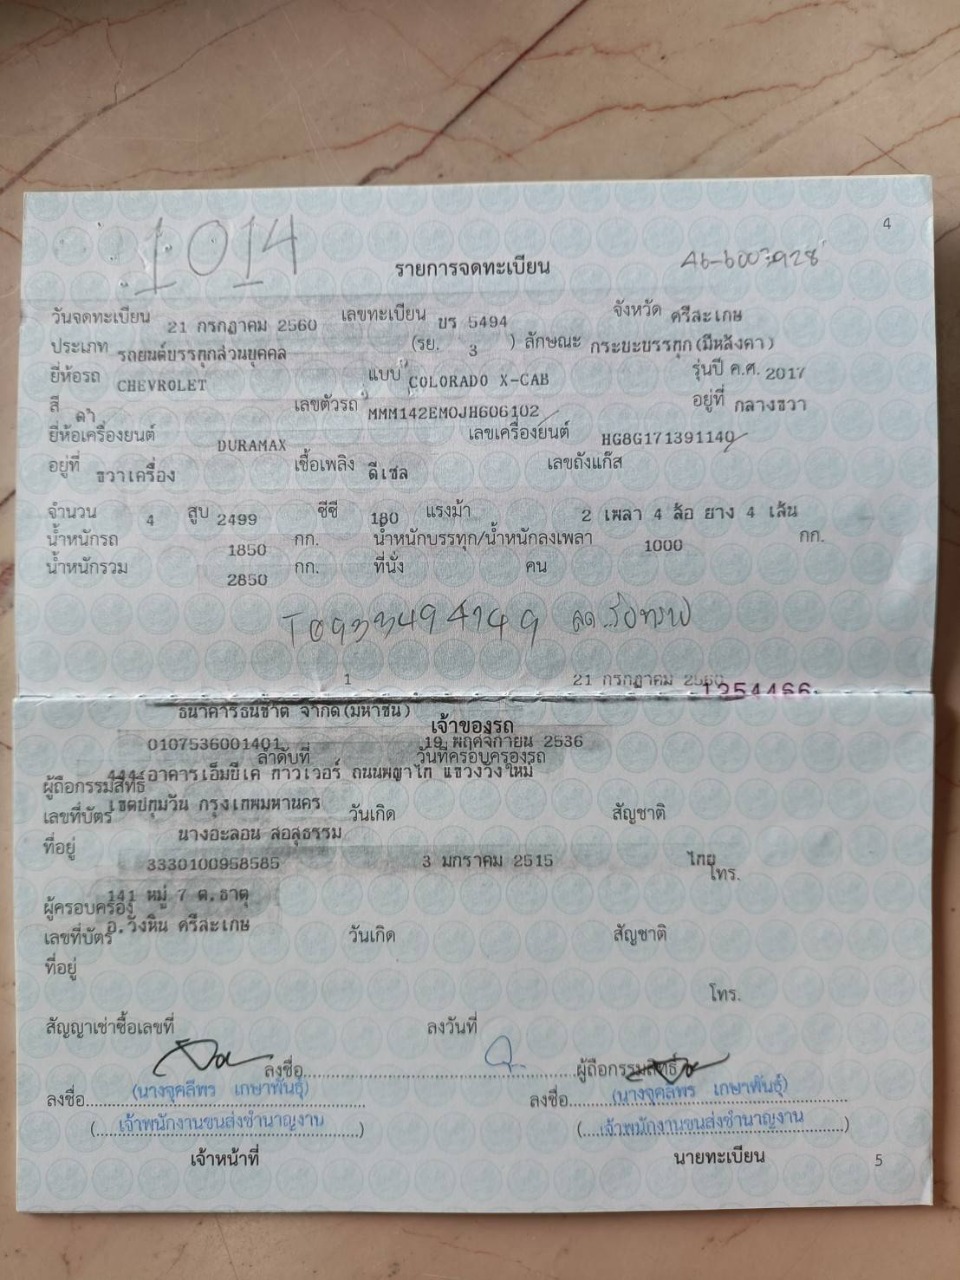 4
1014
รายการจดทะเบียน
วันจดทะเบียน 21 กรกฎาคม 2560 เลขทะเบียน บร 5494 จังหวัด ศรีสะเกษ
ประเภท รถยนต์บรรทุกส่วนบุคคล (รย. 3 ) ลักษณะ กระบะบรรทุก(มีหลังคา)
ยี่ห้อรถ CHEVROLET แบบ COLORADO X-CAB รุ่นปี ค.ศ. 2017
สี ดำ เลขตัวรถ MMM142EM0JH606102 อยู่ที่ กลางขวา
ยี่ห้อเครื่องยนต์ DURAMAX เลขเครื่องยนต์ HG8G171391140
อยู่ที่ ขวาเครื่อง เชื้อเพลิง ดีเซล เลขถังแก๊ส
จำนวน 4 สูบ 2499 ซีซี 180 แรงม้า 2 เพลา 4 ล้อ ยาง 4 เส้น
น้ำหนักรถ 1850 กก. น้ำหนักบรรทุก/น้ำหนักลงเพลา 1000 กก.
น้ำหนักรวม 2850 กก. ที่นั่ง คน
T 0933494749
1 21 กรกฎาคม 2560
1254466
ธนาคารธนชาต จำกัด(มหาชน)
เจ้าของรถ
0107536001401 19 พฤศจิกายน 2536
ลำดับที่ วันที่ครอบครองรถ
444 อาคารเอ็มบีเค ทาวเวอร์ ถนนพญาไท แขวงวังใหม่
ผู้ถือกรรมสิทธิ์
เขตปทุมวัน กรุงเทพมหานคร
เลขที่บัตร วันเกิด สัญชาติ
นางอะลอน สอสุธรรม
ที่อยู่
3330100958585 3 มกราคม 2515 ไทย
โทร.
141 หมู่ 7 ต.ธาตุ
ผู้ครอบครอง
อ.วังหิน ศรีสะเกษ
เลขที่บัตร วันเกิด สัญชาติ
ที่อยู่
โทร.
สัญญาเช่าซื้อเลขที่ ลงวันที่
ลงชื่อ ผู้ถือกรรมสิทธิ์
ลงชื่อ (นางจุคลีพร เกษาพันธุ์) ลงชื่อ (นางจุคลีพร เกษาพันธุ์)
(เจ้าพนักงานขนส่งชำนาญงาน) (เจ้าพนักงานขนส่งชำนาญงาน)
เจ้าหน้าที่ นายทะเบียน
5